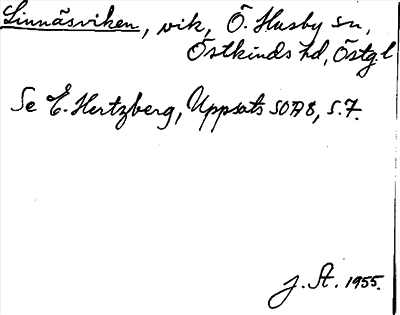 Linnäsviken, vik, Ö. Husby sn,
Östkinds hd, Östg.l
Se E. Hertzberg, Uppsats SOA8, s. 7.
J. St. 1955.